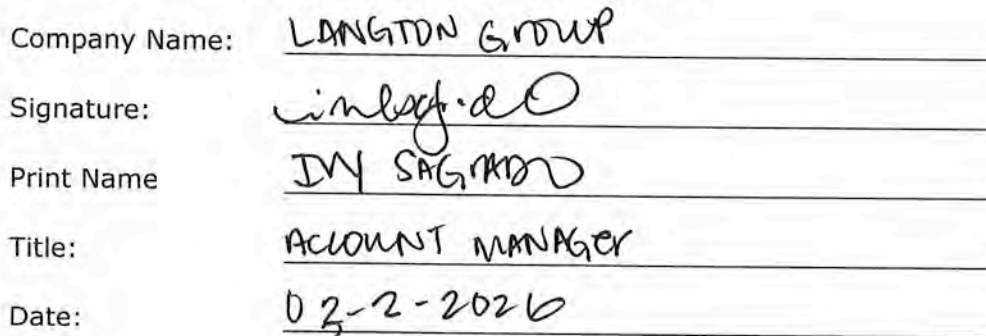 Company Name: LANGTON GROUP
Signature:
Print Name IVY SAGRADO
Title: ACCOUNT MANAGER
Date: 02-2-2026